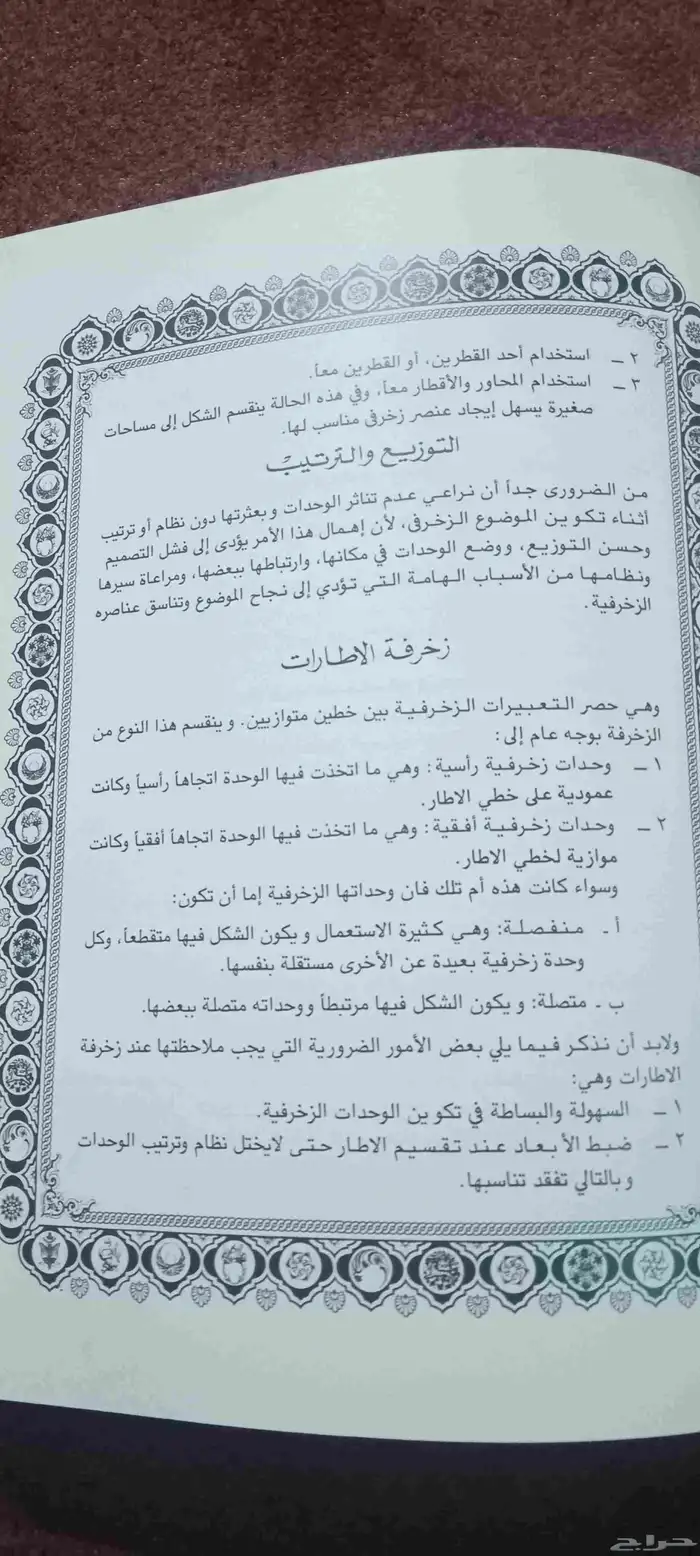 ٢ ــ استخدام أحد القطرين، أو القطرين معاً.
٣ ــ استخدام المحاور والأقطار معاً، وفي هذه الحالة ينقسم الشكل إلى مساحات
صغيرة يسهل إيجاد عنصر زخرفى مناسب لها.
التوزيع والترتيب
من الضرورى جداً أن نراعي عدم تناثر الوحدات وبعثرتها دون نظام أو ترتيب
أثناء تكوين الموضوع الزخرفى، لأن إهمال هذا الأمر يؤدى إلى فشل التصميم
وحسن التوزيع، ووضع الوحدات في مكانها، وارتباطها ببعضها، ومراعاة سيرها
ونظامها من الأسباب الهامة التي تؤدي إلى نجاح الموضوع وتناسق عناصره
الزخرفية.
زخرفة الاطارات
وهي حصر التعبيرات الزخرفية بين خطين متوازيين. وينقسم هذا النوع من
الزخرفة بوجه عام إلى:
١ ــ وحدات زخرفية رأسية: وهي ما اتخذت فيها الوحدة اتجاهاً رأسياً وكانت
عمودية على خطي الاطار.
٢ ــ وحدات زخرفية أفقية: وهي ما اتخذت فيها الوحدة اتجاهاً أفقياً وكانت
موازية لخطي الاطار.
وسواء كانت هذه أم تلك فان وحداتها الزخرفية إما أن تكون:
أ ـ منفصلة: وهي كثيرة الاستعمال ويكون الشكل فيها متقطعاً، وكل
وحدة زخرفية بعيدة عن الأخرى مستقلة بنفسها.
ب ـ متصلة: ويكون الشكل فيها مرتبطاً ووحداته متصلة ببعضها.
ولابد أن نذكر فيما يلي بعض الأمور الضرورية التي يجب ملاحظتها عند زخرفة
الاطارات وهي:
١ ــ السهولة والبساطة في تكوين الوحدات الزخرفية.
٢ ــ ضبط الأبعاد عند تقسيم الاطار حتى لايختل نظام وترتيب الوحدات
وبالتالي تفقد تناسبها.
حراج